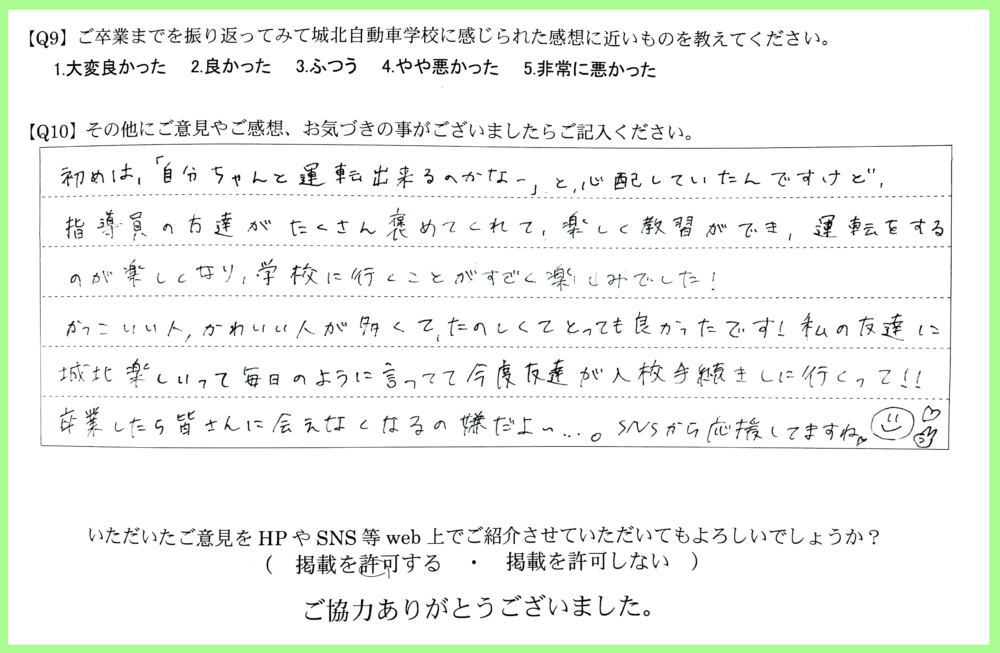 【Q9】ご卒業までを振り返ってみて城北自動車学校に感じられた感想に近いものを教えてください。
1.大変良かった 2.良かった 3.ふつう 4.やや悪かった 5.非常に悪かった
【Q10】その他にご意見やご感想、お気づきの事がございましたらご記入ください。
初めは、「自分ちゃんと運転出来るのかなー」と、心配していたんですけど、
指導員の方達がたくさん褒めてくれて、楽しく教習ができ、運転をする
のが楽しくなり、学校に行くことがすごく楽しみでした!
かっこいい人、かわいい人が多くて、たのしくてとっても良かったです!私の友達に
城北楽しいって毎日のように言ってて今度友達が入校手続きしに行くって!!
卒業したら皆さんに会えなくなるの嫌だよ〜...。SNSから応援してますね。
いただいたご意見をHPやSNS等web上でご紹介させていただいてもよろしいでしょうか?
( 掲載を許可する ・ 掲載を許可しない )
ご協力ありがとうございました。